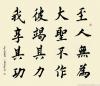 至人無為
大聖不作
彼竭其力
我享其功